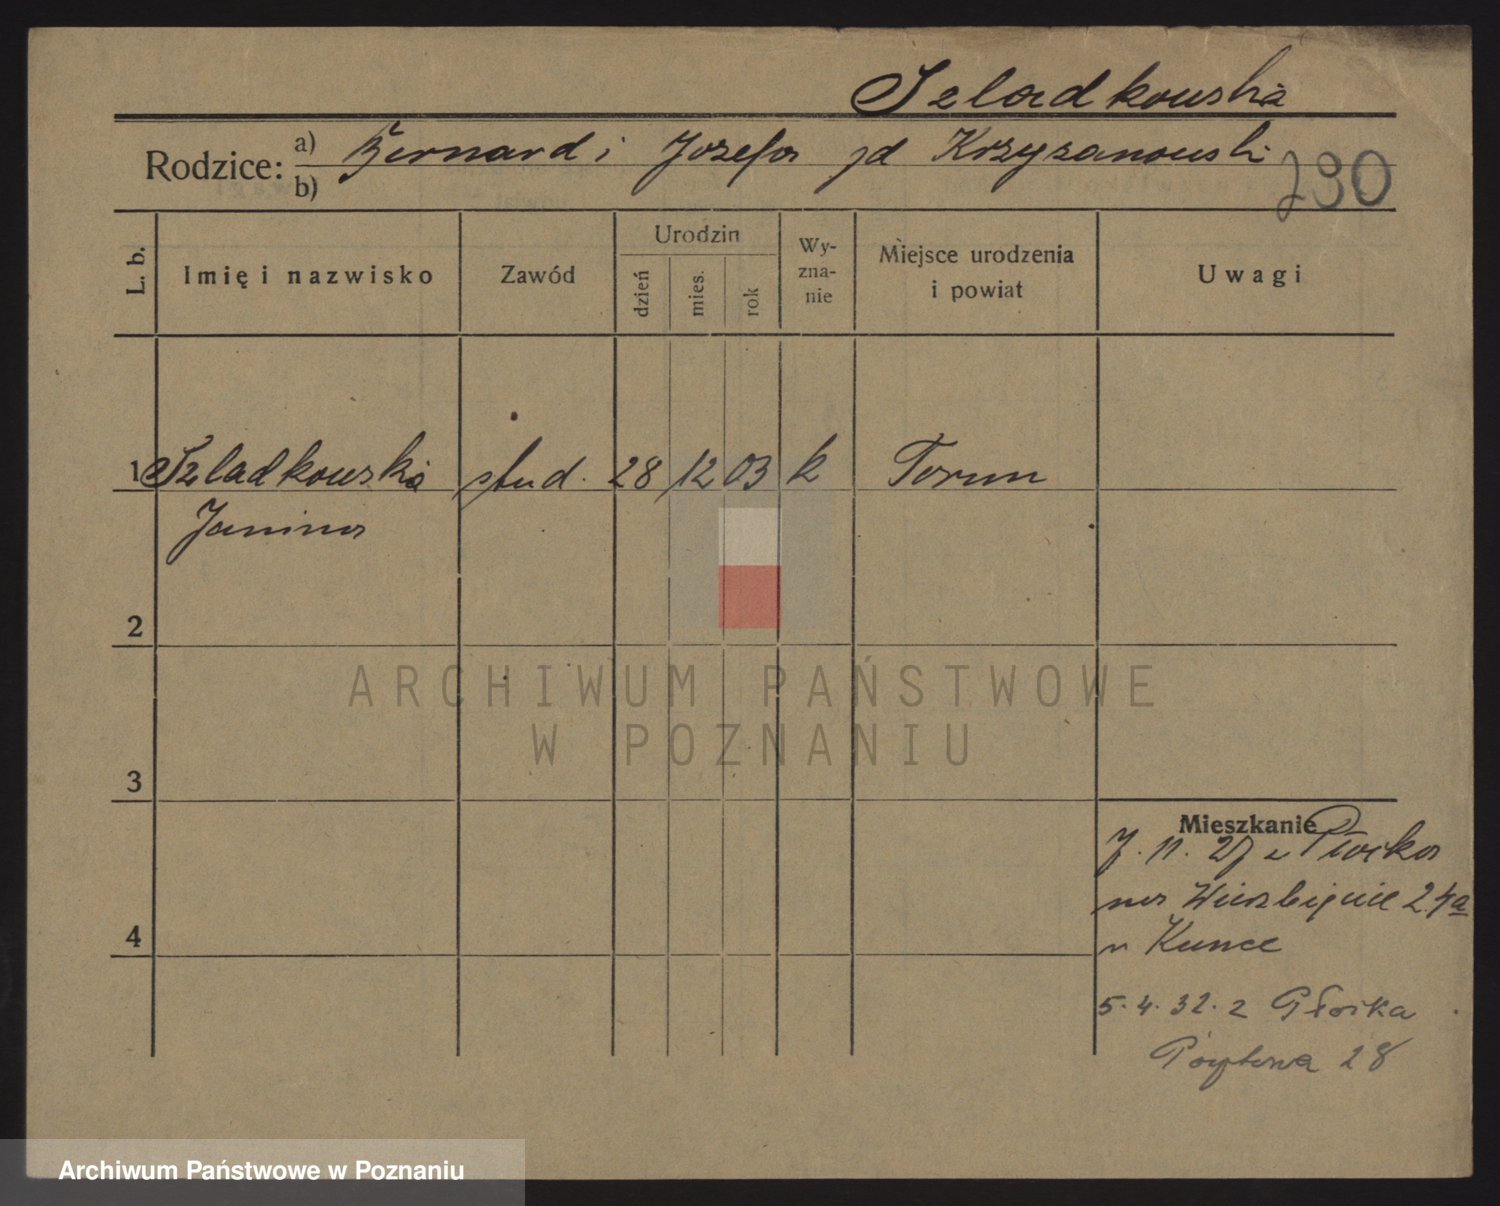 Szladkowska
Rodzice: a) Bernard i Jozefa zd Krzyzanowski
b)
290
L. b. Imię i nazwisko Zawód Urodzin dzień mies. rok Wyznanie Miejsce urodzenia i powiat Uwagi
1 Szladkowska stud. 28 12 03 k Torun
Janina
2
ARCHIWUM PAŃSTWOWE
W POZNANIU
3
Mieszkanie
7. 11. 27 z Płocka
na Wierzbięcice 24a
u Kunce
4
5.4.32. z Płocka
28
Archiwum Państwowe w Poznaniu